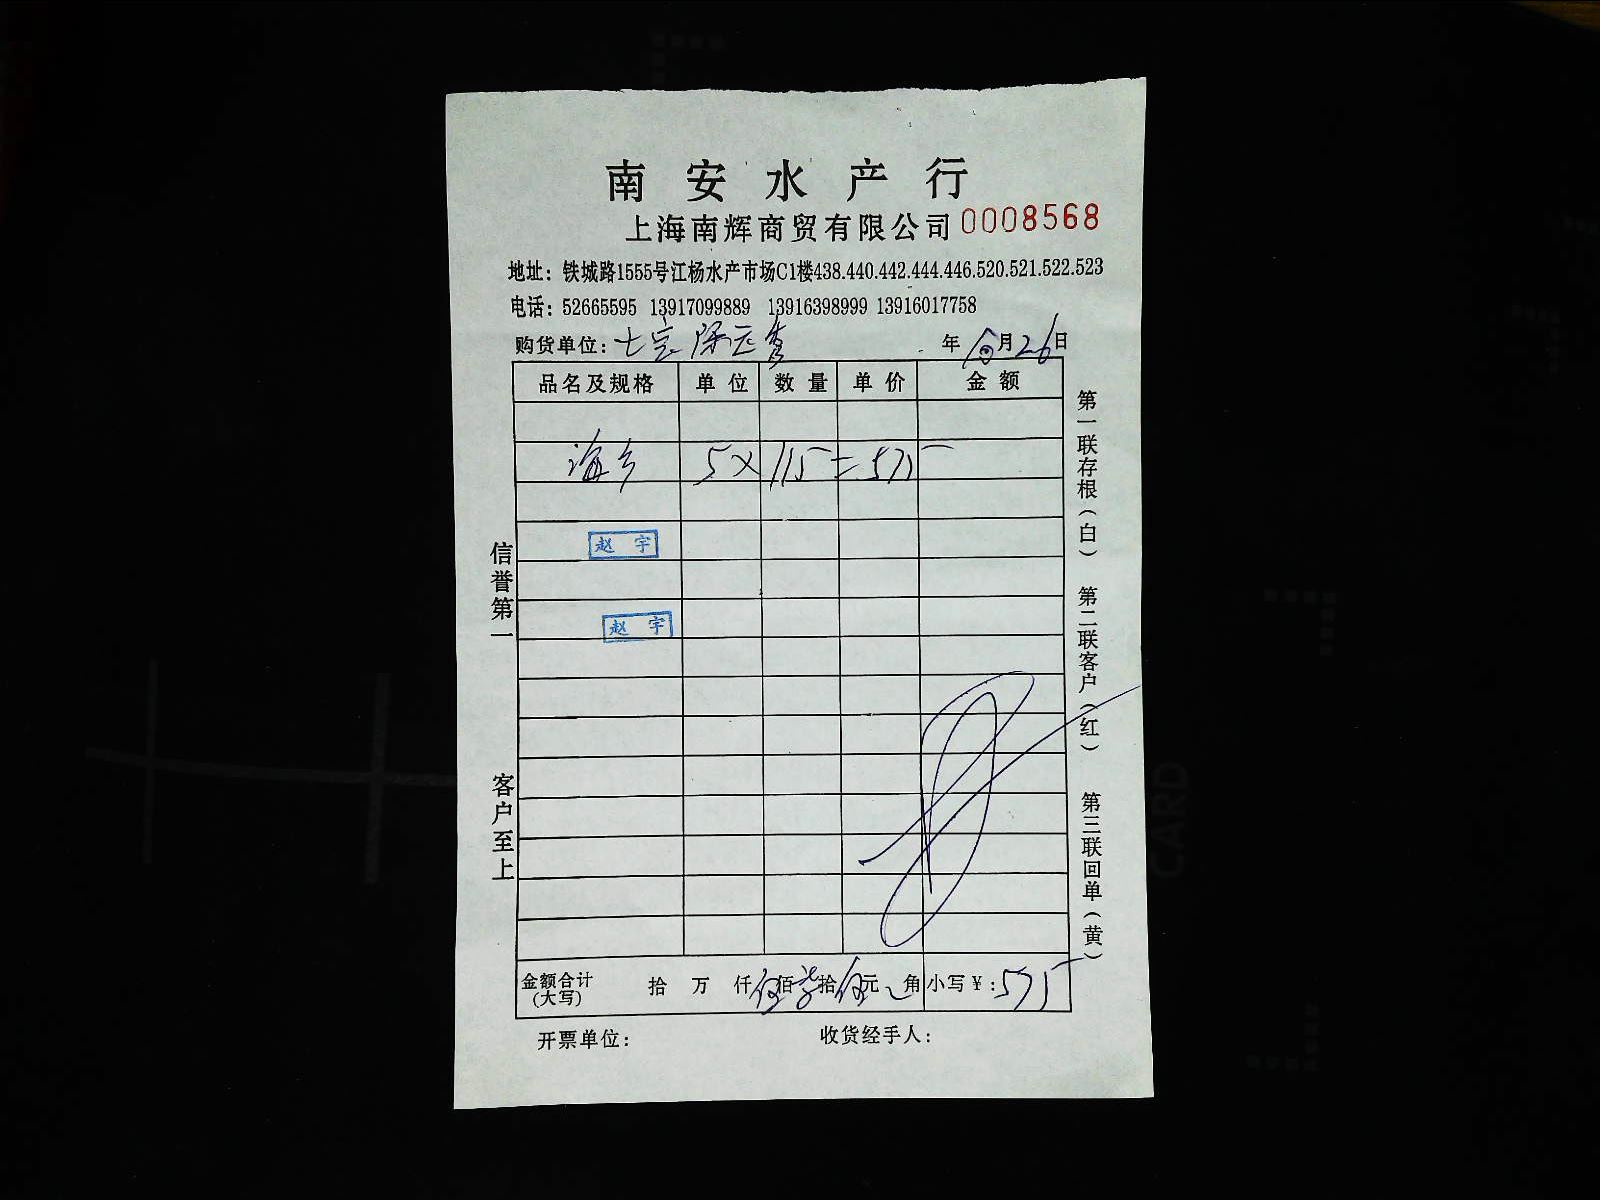 南安水产行
上海南辉商贸有限公司 0008568
地址：铁城路1555号江杨水产市场C1楼438.440.442.444.446.520.521.522.523
电话：52665595 13917099889 13916398999 13916017758
购货单位： 年 月26日
品名及规格 单位 数量 单价 金额
5×115=575
赵宇
赵宇
信誉第一
客户至上
第一联存根（白）
第二联客户（红）
第三联回单（黄）
金额合计（大写） 拾 万 仟伍佰柒拾伍元 角 小写￥：575
开票单位： 收货经手人：